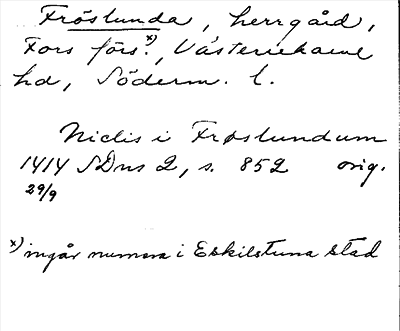 Fröslunda, herrgård,
Fors förs. x), Västerrekarne
hd, Söderm. l.
Niclis i Frøslundum
1414 SDns 2, s. 852 orig.
29/9
x) ingår numera i Eskilstuna stad